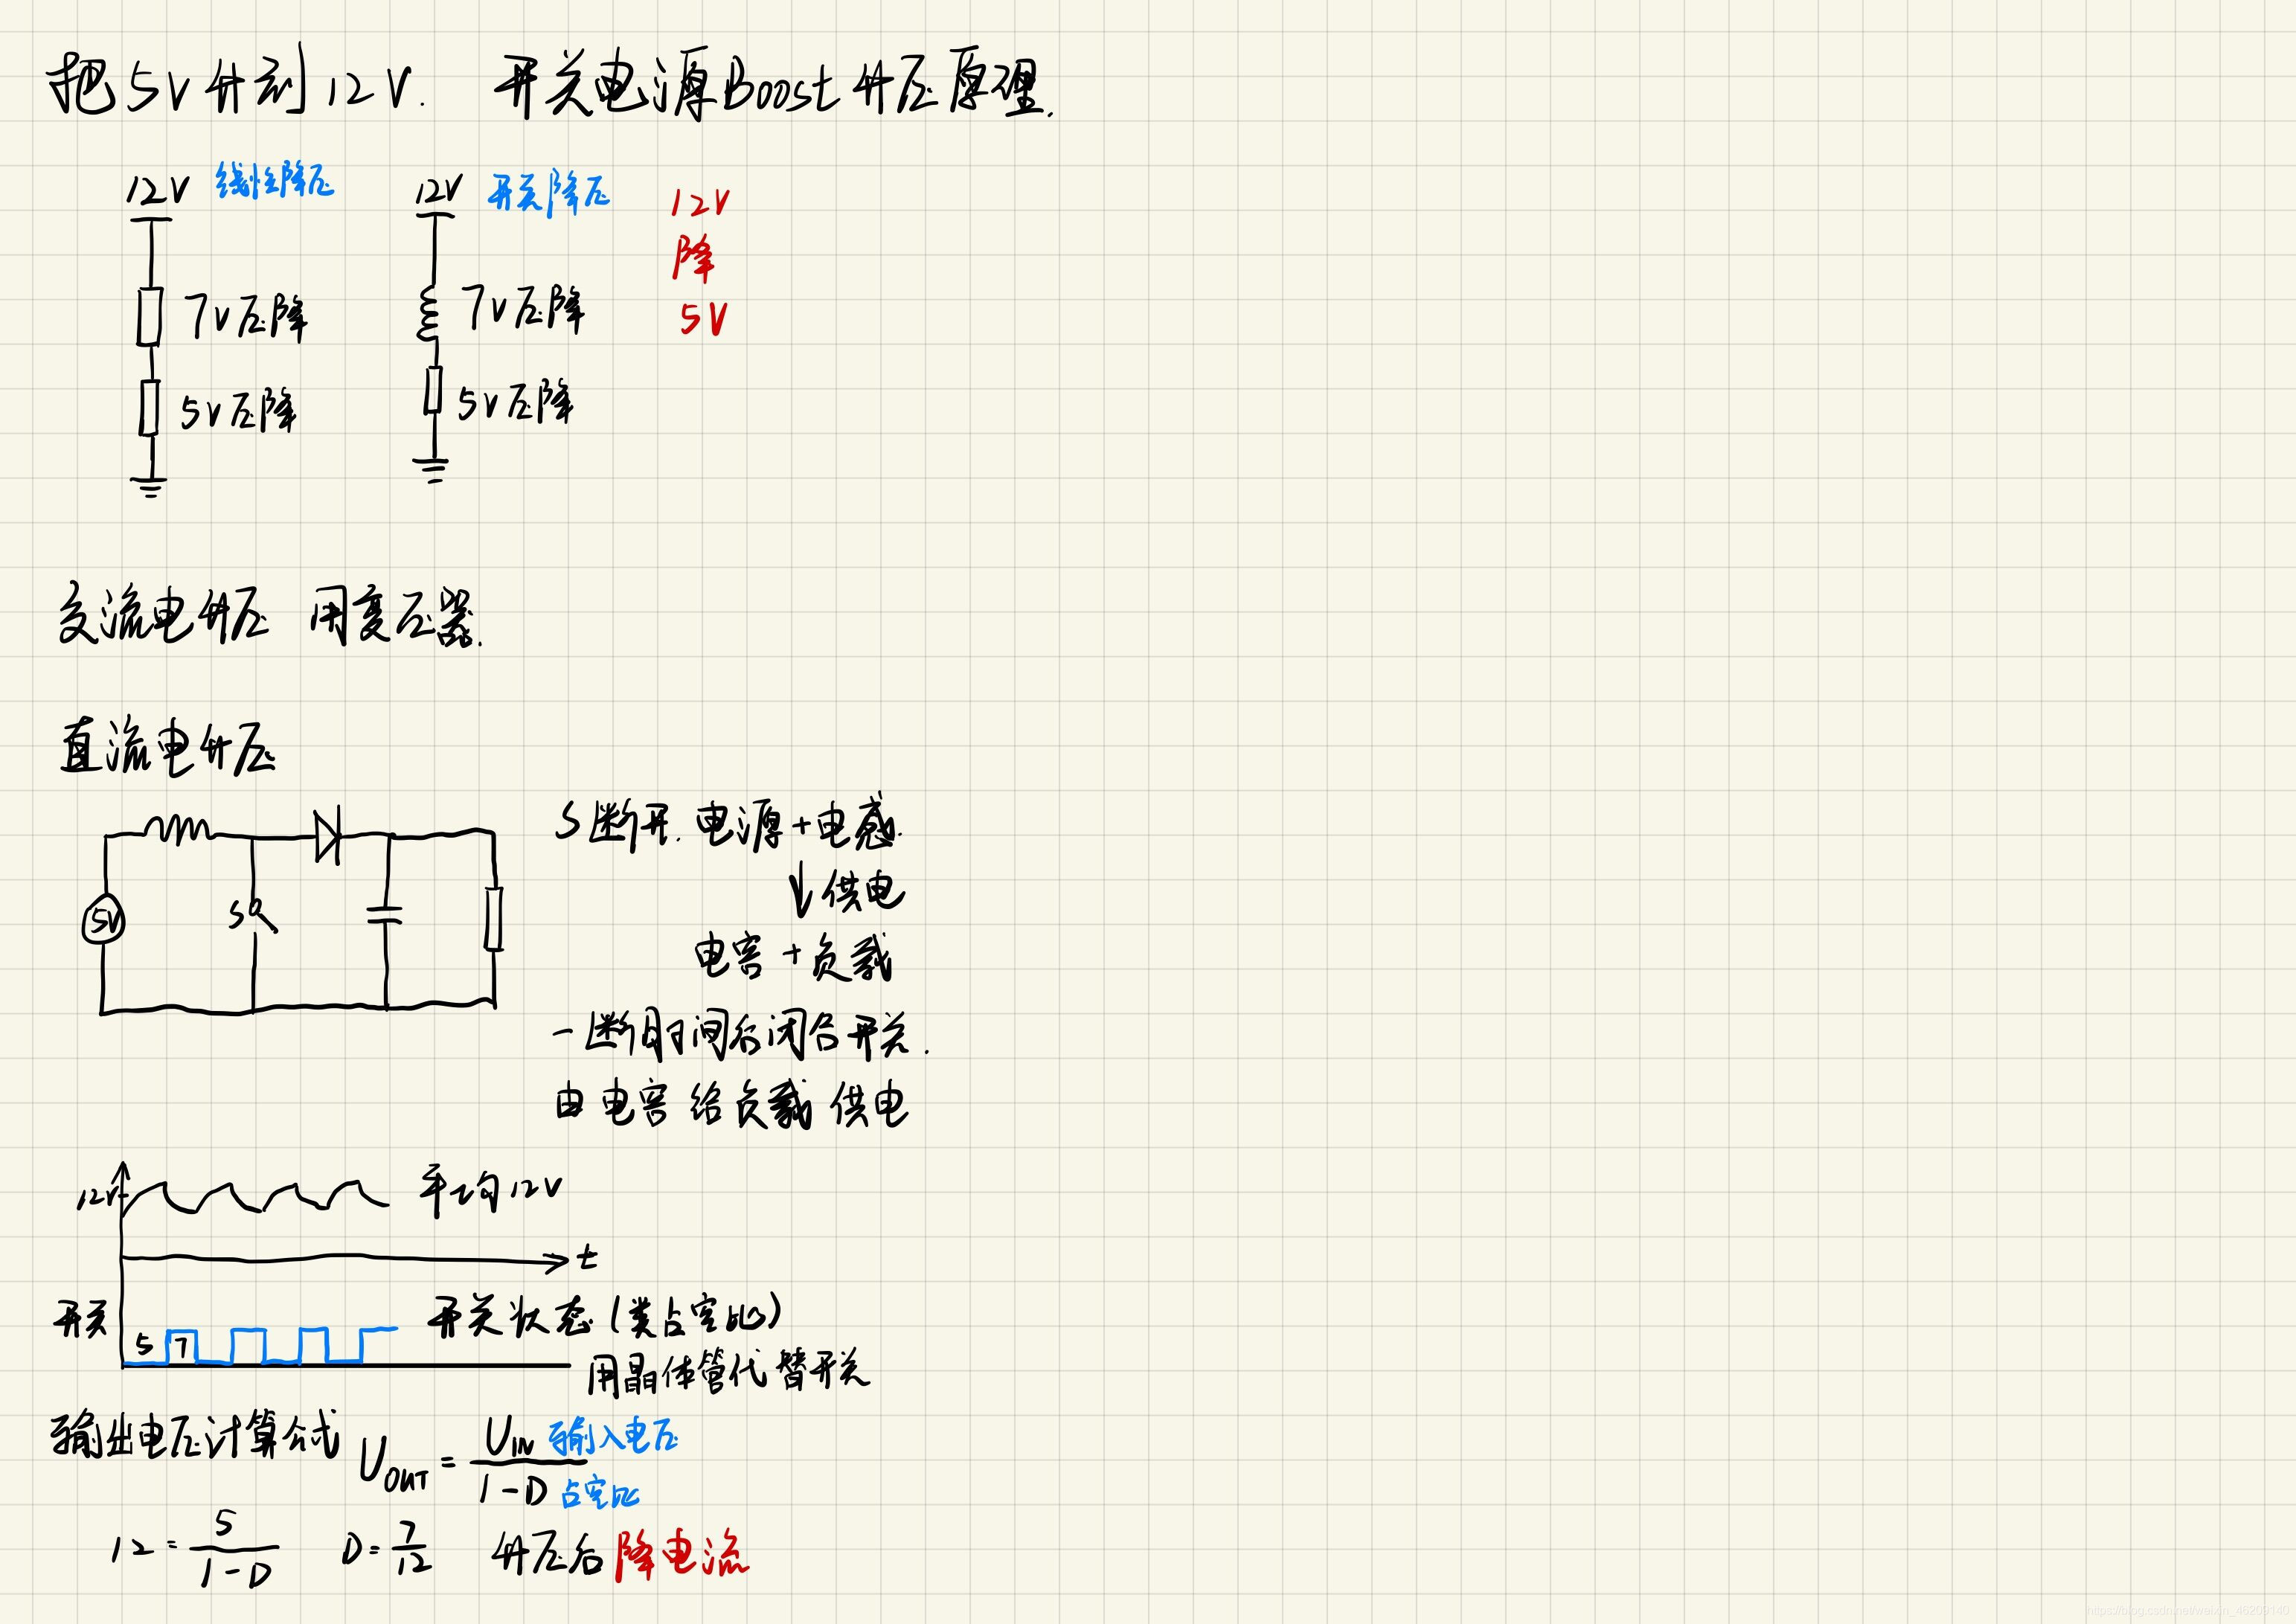 把5V升到12V. 开关电源Boost升压原理.
12V 线性降压
7V压降
5V压降
12V 开关降压
7V压降
5V压降
12V
降
5V
交流电升压 用变压器.
直流电升压
5V
S
S断开. 电源+电感.
↓供电
电容+负载
一断时间后闭合开关.
由电容给负载供电
12V
平均12V
t
开关
5 7
开关状态(类占空比)
用晶体管代替开关
输出电压计算公式 U_OUT = U_IN / (1-D)
输入电压
占空比
12 = 5 / (1-D) D = 7/12 升压后降电流
https://blog.csdn.net/weixin_46209140